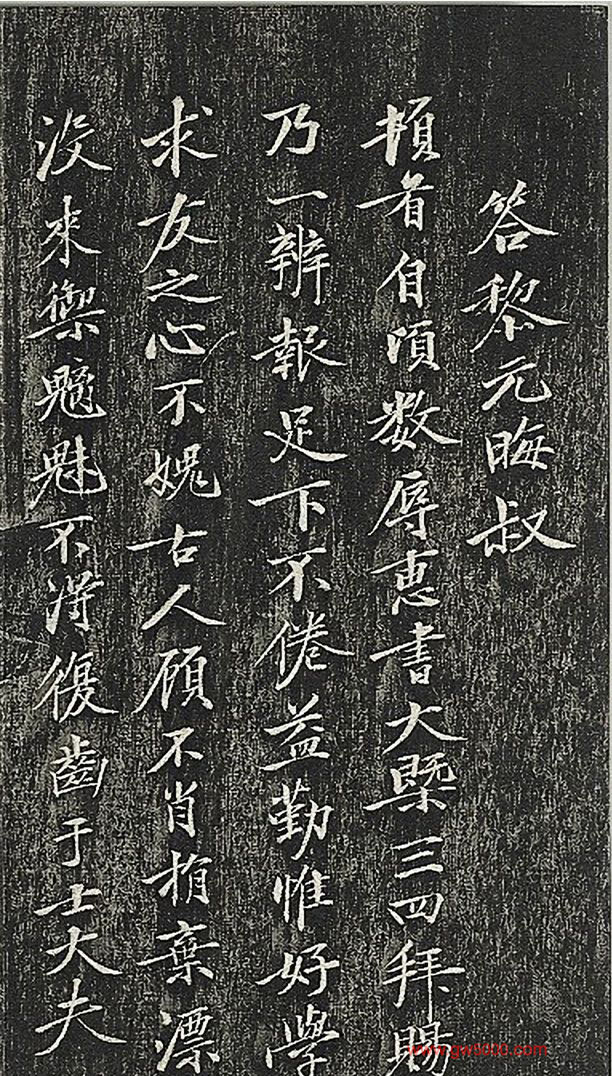 答黎元晦叔
頓首自頃數辱惠書大槩三四拜賜
乃一辨報足下不倦益勤惟好學
求友之心不媿古人顧不肖捐棄漂
没來禦魑魅不得復齒于士大夫
www.gw8600.com